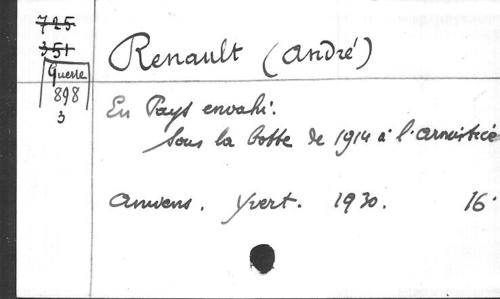 725
351
Guerre
898
3
Renault (André)
En Pays envahi.
Sous la botte de 1914 à l'armistice
Amiens. Yvert. 1930. 16°